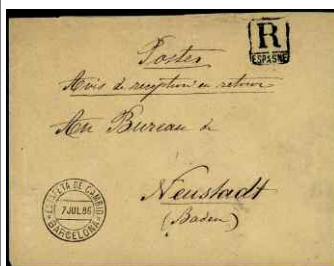 Postes
R
ESPAGNE
Avis de reception en retour
Au Bureau de
Neustadt
(Baden)
ESTAFETA DE CAMBIO
7 JUL 86
BARCELONA